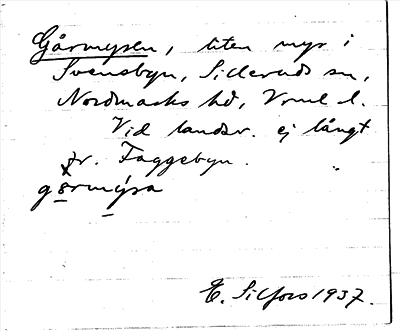 Gårmysen, liten myr i
Svensbyn, Silleruds sn,
Nordmarks hd, Vrml. l.
Vid landsv. ej långt
fr. Faggebyn.
gårmýsa
E. Silfors 1937.